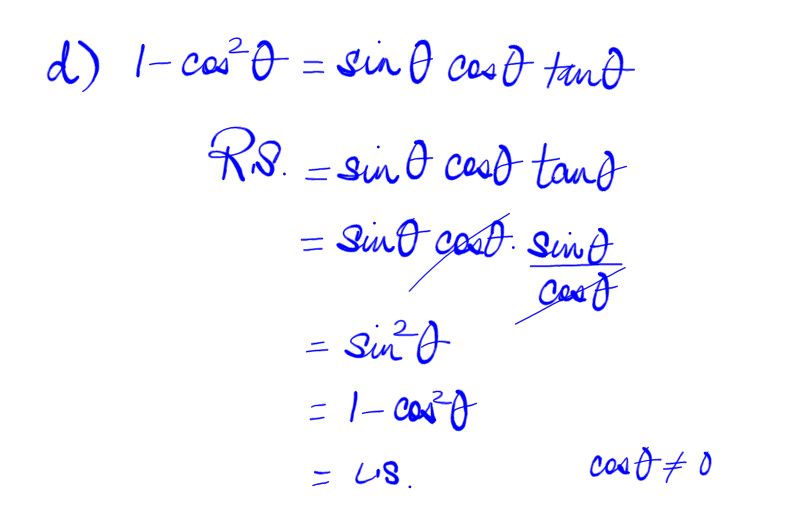 d) 1-cos²θ = sinθ cosθ tanθ
R.S. = sinθ cosθ tanθ
= sinθ cosθ · sinθ/cosθ
= sin²θ
= 1-cos²θ
= LS. cosθ ≠ 0